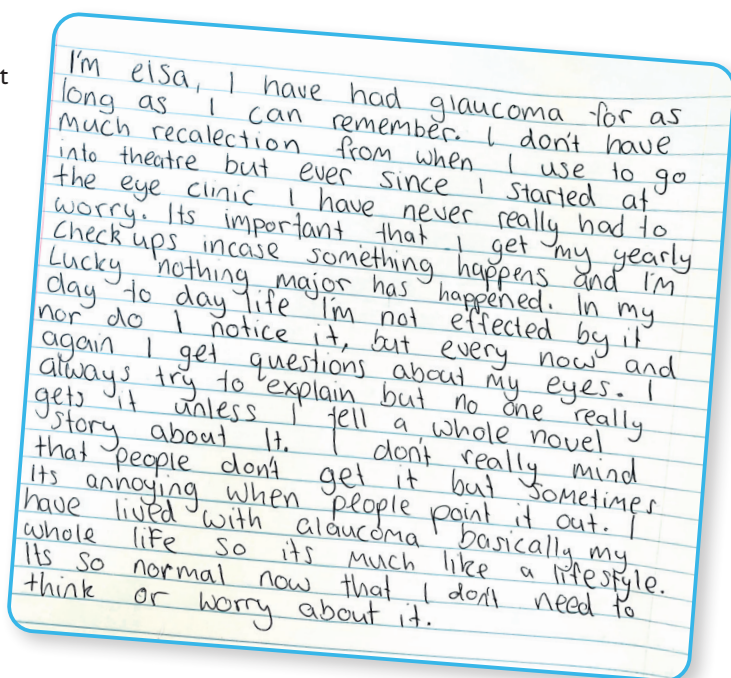 t
I'm eisa, I have had glaucoma for as
long as I can remember. I don't have
much recalection from when I use to go
into theatre but ever since I started at
the eye clinic I have never really had to
worry. Its important that I get my yearly
check ups incase something happens and I'm
Lucky nothing major has happened. In my
day to day life I'm not effected by it
nor do I notice it, but every now and
again I get questions about my eyes. I
always try to explain but no one really
gets it unless I tell a whole novel
story about it. I don't really mind
that people don't get it but sometimes
Its annoying when people point it out. I
have lived with alaucoma basically my
whole life so its much like a lifestyle.
Its so normal now that I don't need to
think or worry about it.